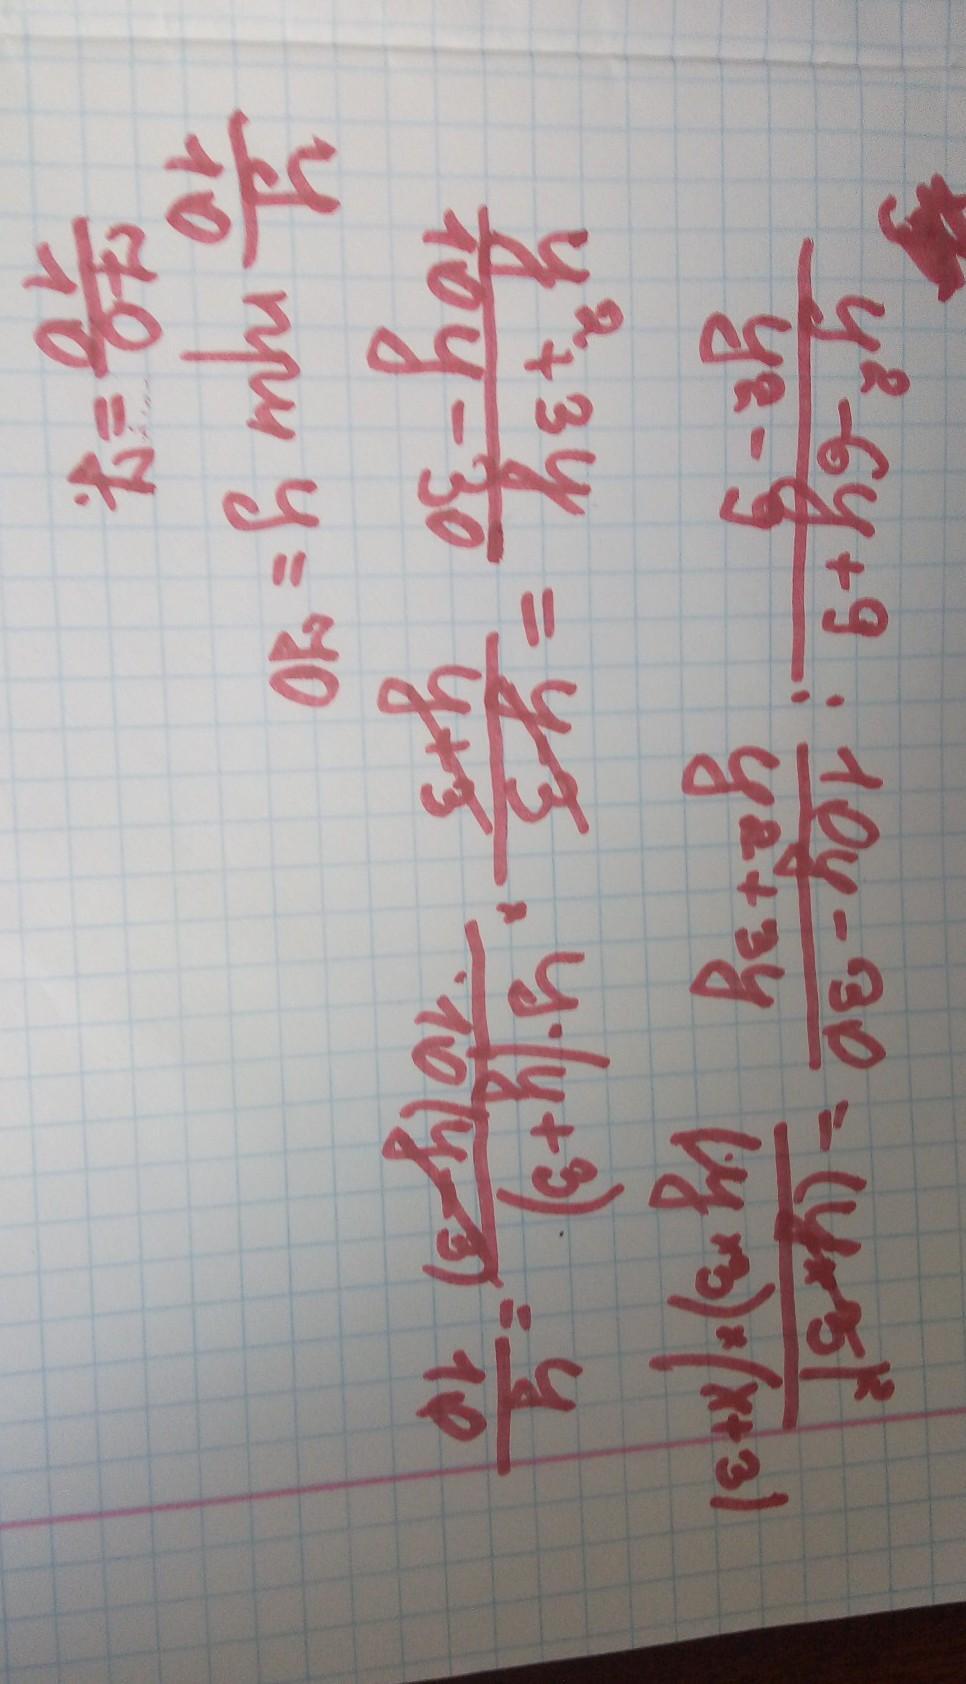 y² - 6y + 9 / y² - 9 : 10y - 30 / y² + 3y = (y - 3)² / (y - 3) × (x + 3)
y² + 3y / 10y - 30 = y - 3 / y + 3 × y · (y + 3) / 10 (y - 3) = y / 10
y / 10 при y = 70
70 / 10 = 7